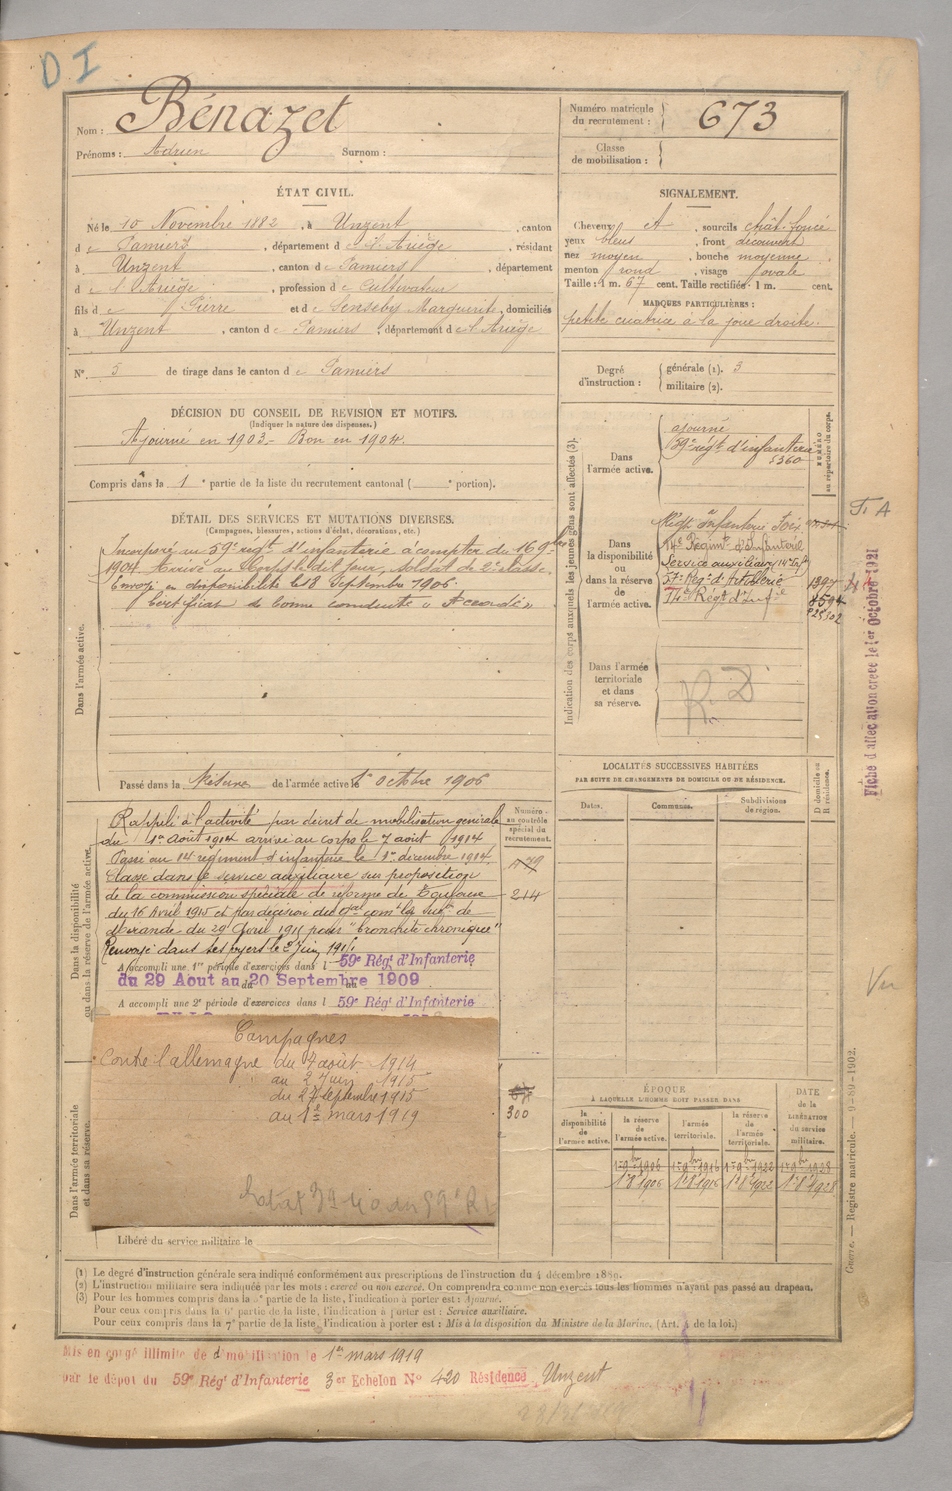 D I
Nom : Bénazet
Prénoms : Adrien Surnom :
Numéro matricule
du recrutement : 673
Classe
de mobilisation :
ÉTAT CIVIL.
Né le 10 Novembre 1882, à Unzent, canton
de Pamiers, département de l'Ariège, résidant
à Unzent, canton de Pamiers, département
de l'Ariège, profession de Cultivateur
fils de Pierre et de Senseby Marguerite, domiciliés
à Unzent, canton de Pamiers, département de l'Ariège
N° 5 de tirage dans le canton de Pamiers
SIGNALEMENT.
Cheveux et, sourcils chât. foncé
yeux bleus, front découvert
nez moyen, bouche moyenne
menton rond, visage ovale
Taille : 1 m. 67 cent. Taille rectifiée : 1 m. cent.
MARQUES PARTICULIÈRES :
petite cicatrice à la joue droite.
Degré
d'instruction :
générale (1). 3
militaire (2).
DÉCISION DU CONSEIL DE REVISION ET MOTIFS.
(Indiquer la nature des dispenses.)
Ajourné en 1903 - Bon en 1904.
Compris dans la 1e partie de la liste du recrutement cantonal ( e portion).
DÉTAIL DES SERVICES ET MUTATIONS DIVERSES.
(Campagnes, blessures, actions d'éclat, décorations, etc.)
Dans l'armée active.
Incorporé au 59e régt d'infanterie à compter du 16 9bre
1904. Arrivé au corps le dit jour, soldat de 2e classe.
Envoyé en disponibilité le 18 Septembre 1906.
Certificat de bonne conduite "Accordé"
Passé dans la Réserve de l'armée active le 1er octobre 1906
Indication des corps auxquels les jeunes gens sont affectés (3).
NUMÉRO
au répertoire du corps.
Dans
l'armée active.
ajourné
59e régt d'infanterie
5360
Dans
la disponibilité
ou
dans la réserve
de
l'armée active.
Régt infanterie Foix
14e Régimt d'Infanterie
Service auxiliaire 14e Infie
57e Régt d'Artillerie 1397
14e Régt d'Infie 8594
Dans l'armée
territoriale
et dans
sa réserve.
R. D
T. A
Fiche d'affectation créée le 1er Octobre 1921
Vu
LOCALITÉS SUCCESSIVES HABITÉES
PAR SUITE DE CHANGEMENTS DE DOMICILE OU DE RÉSIDENCE.
Dates. Communes. Subdivisions
de région.
D domicile ou
R résidence.
Dans la disponibilité
ou dans la réserve de l'armée active.
Numéro
au contrôle
spécial du
recrutement.
Rappelé à l'activité par décret de mobilisation générale
du 1er Août 1914 arrivé au corps le 7 août 1914
Passé au 14e régiment d'infanterie le 1er décembre 1914.
Classé dans le service auxiliaire sur proposition
de la commission spéciale de réforme de Toulouse 214
du 16 Avril 1915 et par décision du Gal comt la subon de
Mirande du 29 Avril 1915 pour "bronchite chronique"
Renvoyé dans ses foyers le 2 Juin 1915.
A accompli une 1re période d'exercices dans l 59e Régt d'Infanterie
du 29 Aout au 20 Septembre 1909
A accompli une 2e période d'exercices dans l 59e Régt d'Infanterie
Campagnes
Contre l'allemagne du 7 août 1914
au 2 Juin 1915
du 27 septembre 1915
au 1er mars 1919
300
Dans l'armée territoriale
et dans sa réserve.
Libéré du service militaire le
ÉPOQUE
À LAQUELLE L'HOMME DOIT PASSER DANS
la
disponibilité
de
l'armée active.
la réserve
de
l'armée active.
l'armée
territoriale.
la réserve
de
l'armée
territoriale.
DATE
de la
LIBÉRATION
du service
militaire.
1er 9bre 1906 1er 9bre 1916 1er 9bre 1922 1er 9bre 1928
1er 8bre 1906 1er 8bre 1916 1er 8bre 1922 1er 8bre 1928
Guerre. — Registre matricule. — 9-89-1902.
(1) Le degré d'instruction générale sera indiqué conformément aux prescriptions de l'instruction du 4 décembre 1889.
(2) L'instruction militaire sera indiquée par les mots : exercé ou non exercé. On comprendra comme non exercés tous les hommes n'ayant pas passé au drapeau.
(3) Pour les hommes compris dans la 5e partie de la liste, l'indication à porter est : Ajourné.
Pour ceux compris dans la 6e partie de la liste, l'indication à porter est : Service auxiliaire.
Pour ceux compris dans la 7e partie de la liste, l'indication à porter est : Mis à la disposition du Ministre de la Marine. (Art. 4 de la loi.)
Mis en congé illimité de démobilisation le 1er mars 1919
par le dépôt du 59e Régt d'Infanterie 3er Echelon N° 420 Résidence Unzent